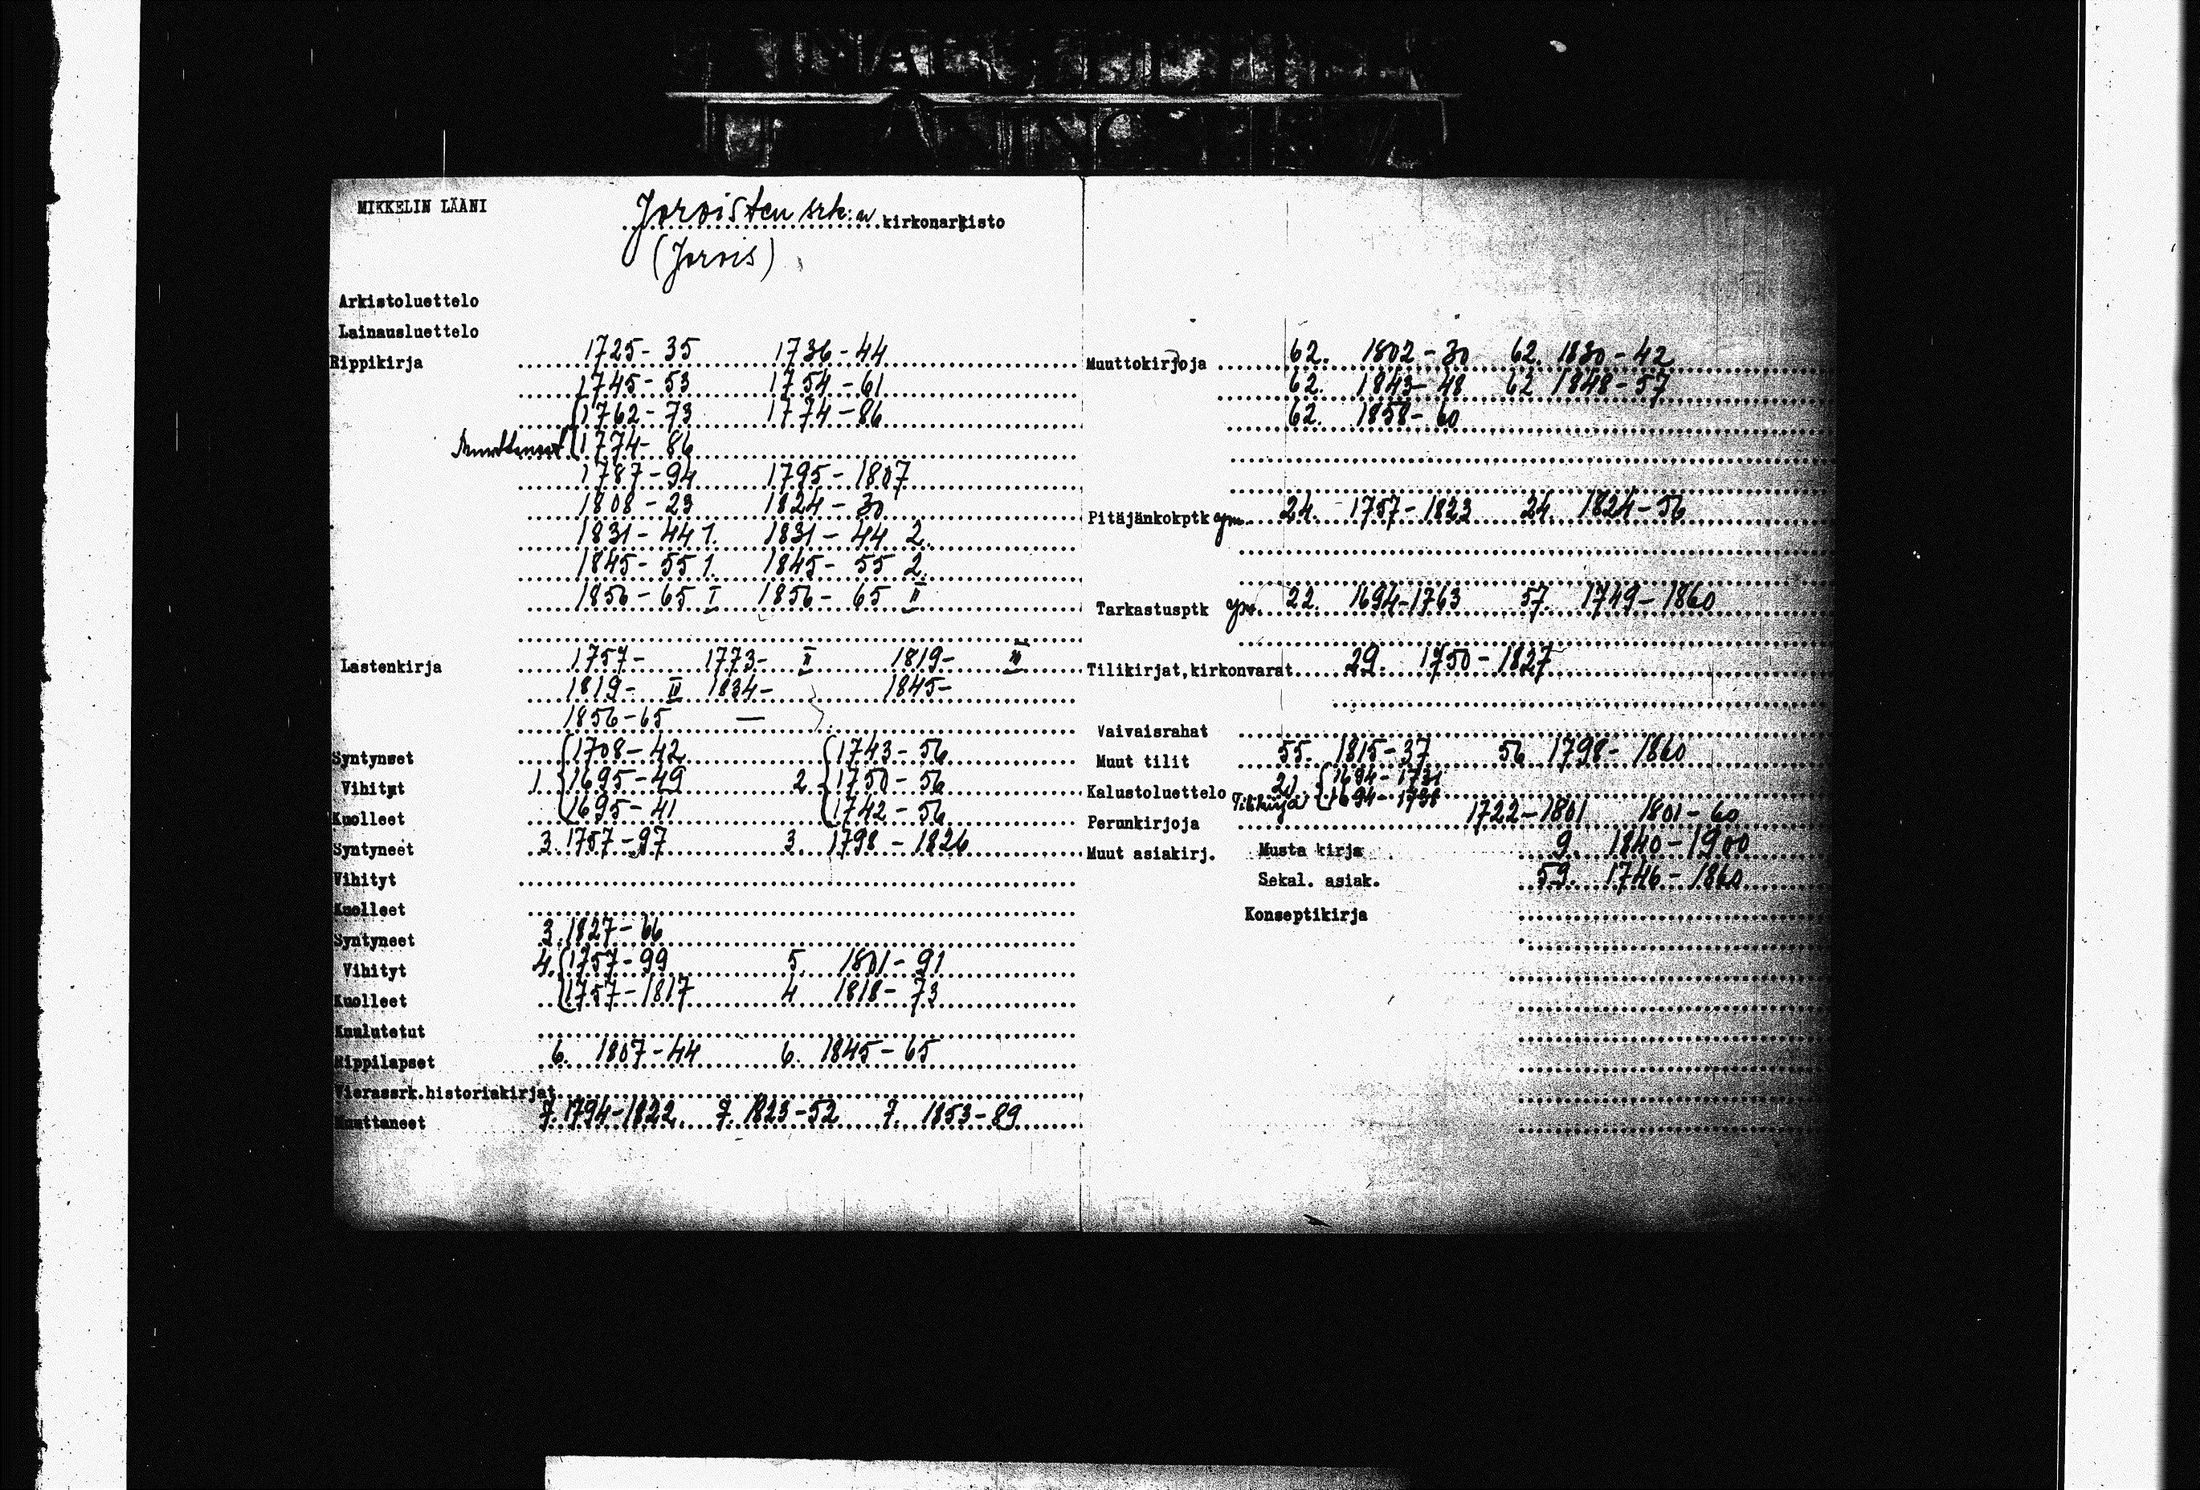 MIKKELIN LÄÄNI
Joroisten srk:n kirkonarkisto
(Jorois)
Arkistoluettelo
Lainausluettelo
Rippikirja 1725-35 1736-44
1745-53 1754-61
1762-73 1774-86
1774-86
1787-94 1795-1807
1808-23 1824-30
1831-44 1. 1831-44 2.
1845-55 1. 1845-55 2.
1856-65 I 1856-65 II
Lastenkirja 1757- 1773- II 1819- III
1819- IV 1834- 1845-
1856-65 —
Syntyneet 1708-42 1743-56
Vihityt 1. 1695-49 2 1750-56
Kuolleet 1695-41 1742-56
Syntyneet 3. 1757-97 3. 1798-1826
Vihityt
Kuolleet
Syntyneet 3. 1827-66
Vihityt 4. 1757-99 5. 1801-91
Kuolleet 1757-1817 4 1818-73
Kuulutetut
Rippilapset 6. 1807-44 6. 1845-65
Vierassrk.historiakirjat
Muuttaneet 7. 1794-1822 7. 1823-52 7. 1853-89
Muuttokirjoja 62. 1802-30 62. 1830-42
62. 1843-48 62 1848-57
62. 1858-60
Pitäjänkokptk ym. 24. 1757-1823 24. 1824-56
Tarkastusptk ym. 22. 1694-1763 57. 1749-1860
Tilikirjat,kirkonvarat 29. 1750-1827
Vaivaisrahat
Muut tilit 55. 1815-37 56 1798-1860
Kalustoluettelo 21 1694-1731
Tilikirja 1694-1798
Perunkirjoja 1722-1801 1801-60
Muut asiakirj. Musta kirja 9. 1840-1900
Sekal. asiak. 59. 1746-1860
Konseptikirja